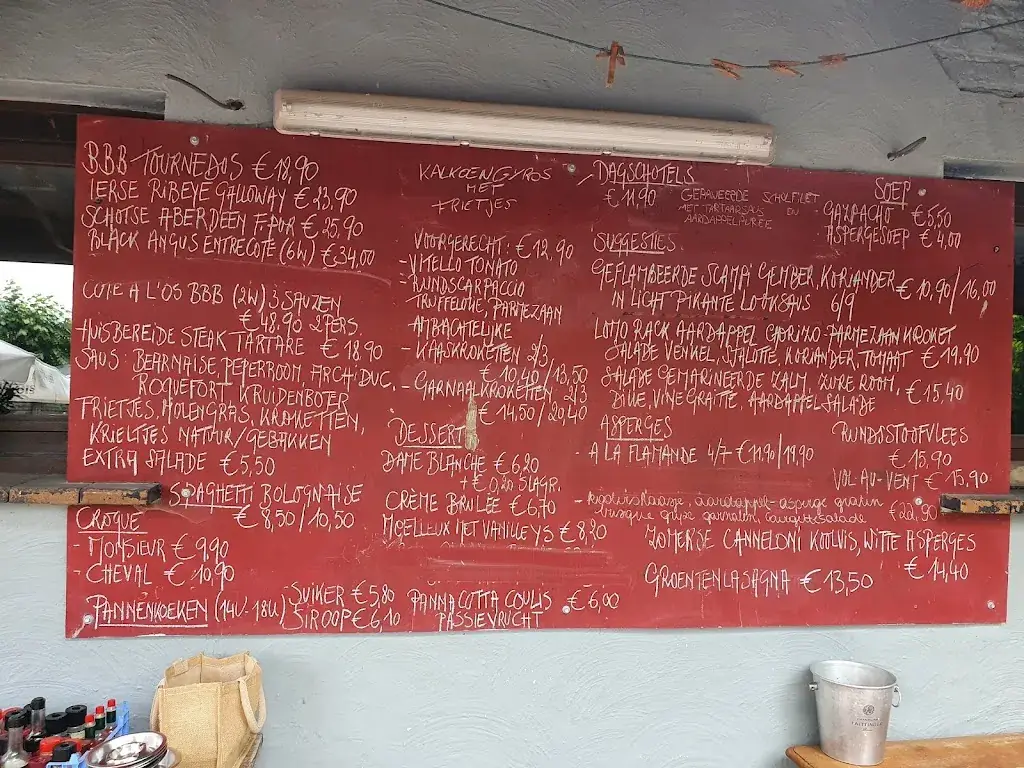 BBB TOURNEDOS € 18,90
IERSE RIBEYE GALLOWAY € 23,90
SCHOTSE ABERDEEN F.PUR € 25.90
BLACK ANGUS ENTRECOTE (6W) € 34,00
COTE A L'OS BBB (2W) 3 SAUZEN
€ 48.90 2PERS.
HUISBEREIDE STEAK TARTARE € 18.90
SAUS: BEARNAISE, PEPERROOM, ARCHIDUC,
ROQUEFORT, KRUIDENBOTER
FRIETJES, MOLENGRAS, KROKETTEN,
KRIELTJES NATUUR/GEBAKKEN
EXTRA SALADE €5,50
SPAGHETTI BOLOGNAISE
€ 8,50/10,50
CROQUE
- MONSIEUR € 9,90
- CHEVAL € 10,90
PANNENKOEKEN (14U-18U)
SUIKER € 5,80
SIROOP € 6,10
KALKOENGYROS
MET
FRIETJES
VOORGERECHT: € 12,90
- VITELLO TONATO
- RUNDSCARPACCIO
TRUFFELOLIE, PARMEZAAN
- AMBACHTELIJKE
- KAASKROKETTEN 2/3
€ 10,40/13,50
- GARNAALKROKETTEN 2/3
€ 14,50/20,40
DESSERT
DAME BLANCHE € 6,20
+ € 0,20 SLAGR.
CRÈME BRULÉE € 6,70
MOELLEUX MET VANILLEYS € 8,20
PANNA COTTA COULIS € 6,00
PASSIEVRUCHT
DAGSCHOTELS
€ 11.90
GEPANEERDE SCHOLFILET
MET TARTAARSAUS EN
AARDAPPELPUREE
SOEP
GAZPACHO € 5,50
ASPERGESOEP € 4,00
SUGGESTIES
GEFLAMBEERDE SCAMPI GEMBER, KORIANDER
IN LICHT PIKANTE LOOKSAUS 6/9 € 10,90/16,00
LOMO RACK AARDAPPEL CHORIZO-PARMEZAAN KROKET
SALADE VENKEL, SJALOTTE, KORIANDER, TOMAAT € 19,90
SALADE GEMARINEERDE ZALM, ZURE ROOM,
DILLE, VINEGRAITTE, AARDAPPELSALADE € 15,40
ASPERGES
- A LA FLAMANDE 4/7 € 11.90/19,90
RUNDSSTOOFVLEES
€ 15,90
VOL-AU-VENT € 15,90
aardappel-asperge gratin
€ 22,90
ZOMERSE CANNELONI KOOLVIS, WITTE ASPERGES
€ 14,40
GROENTENLASAGNA € 13,50
TAITTINGER